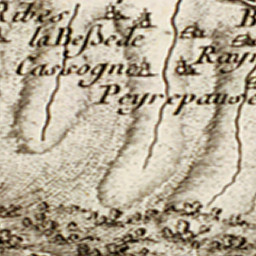 Ribes
B
la Beſse de
Cassogne
Rayr
Peyrepause